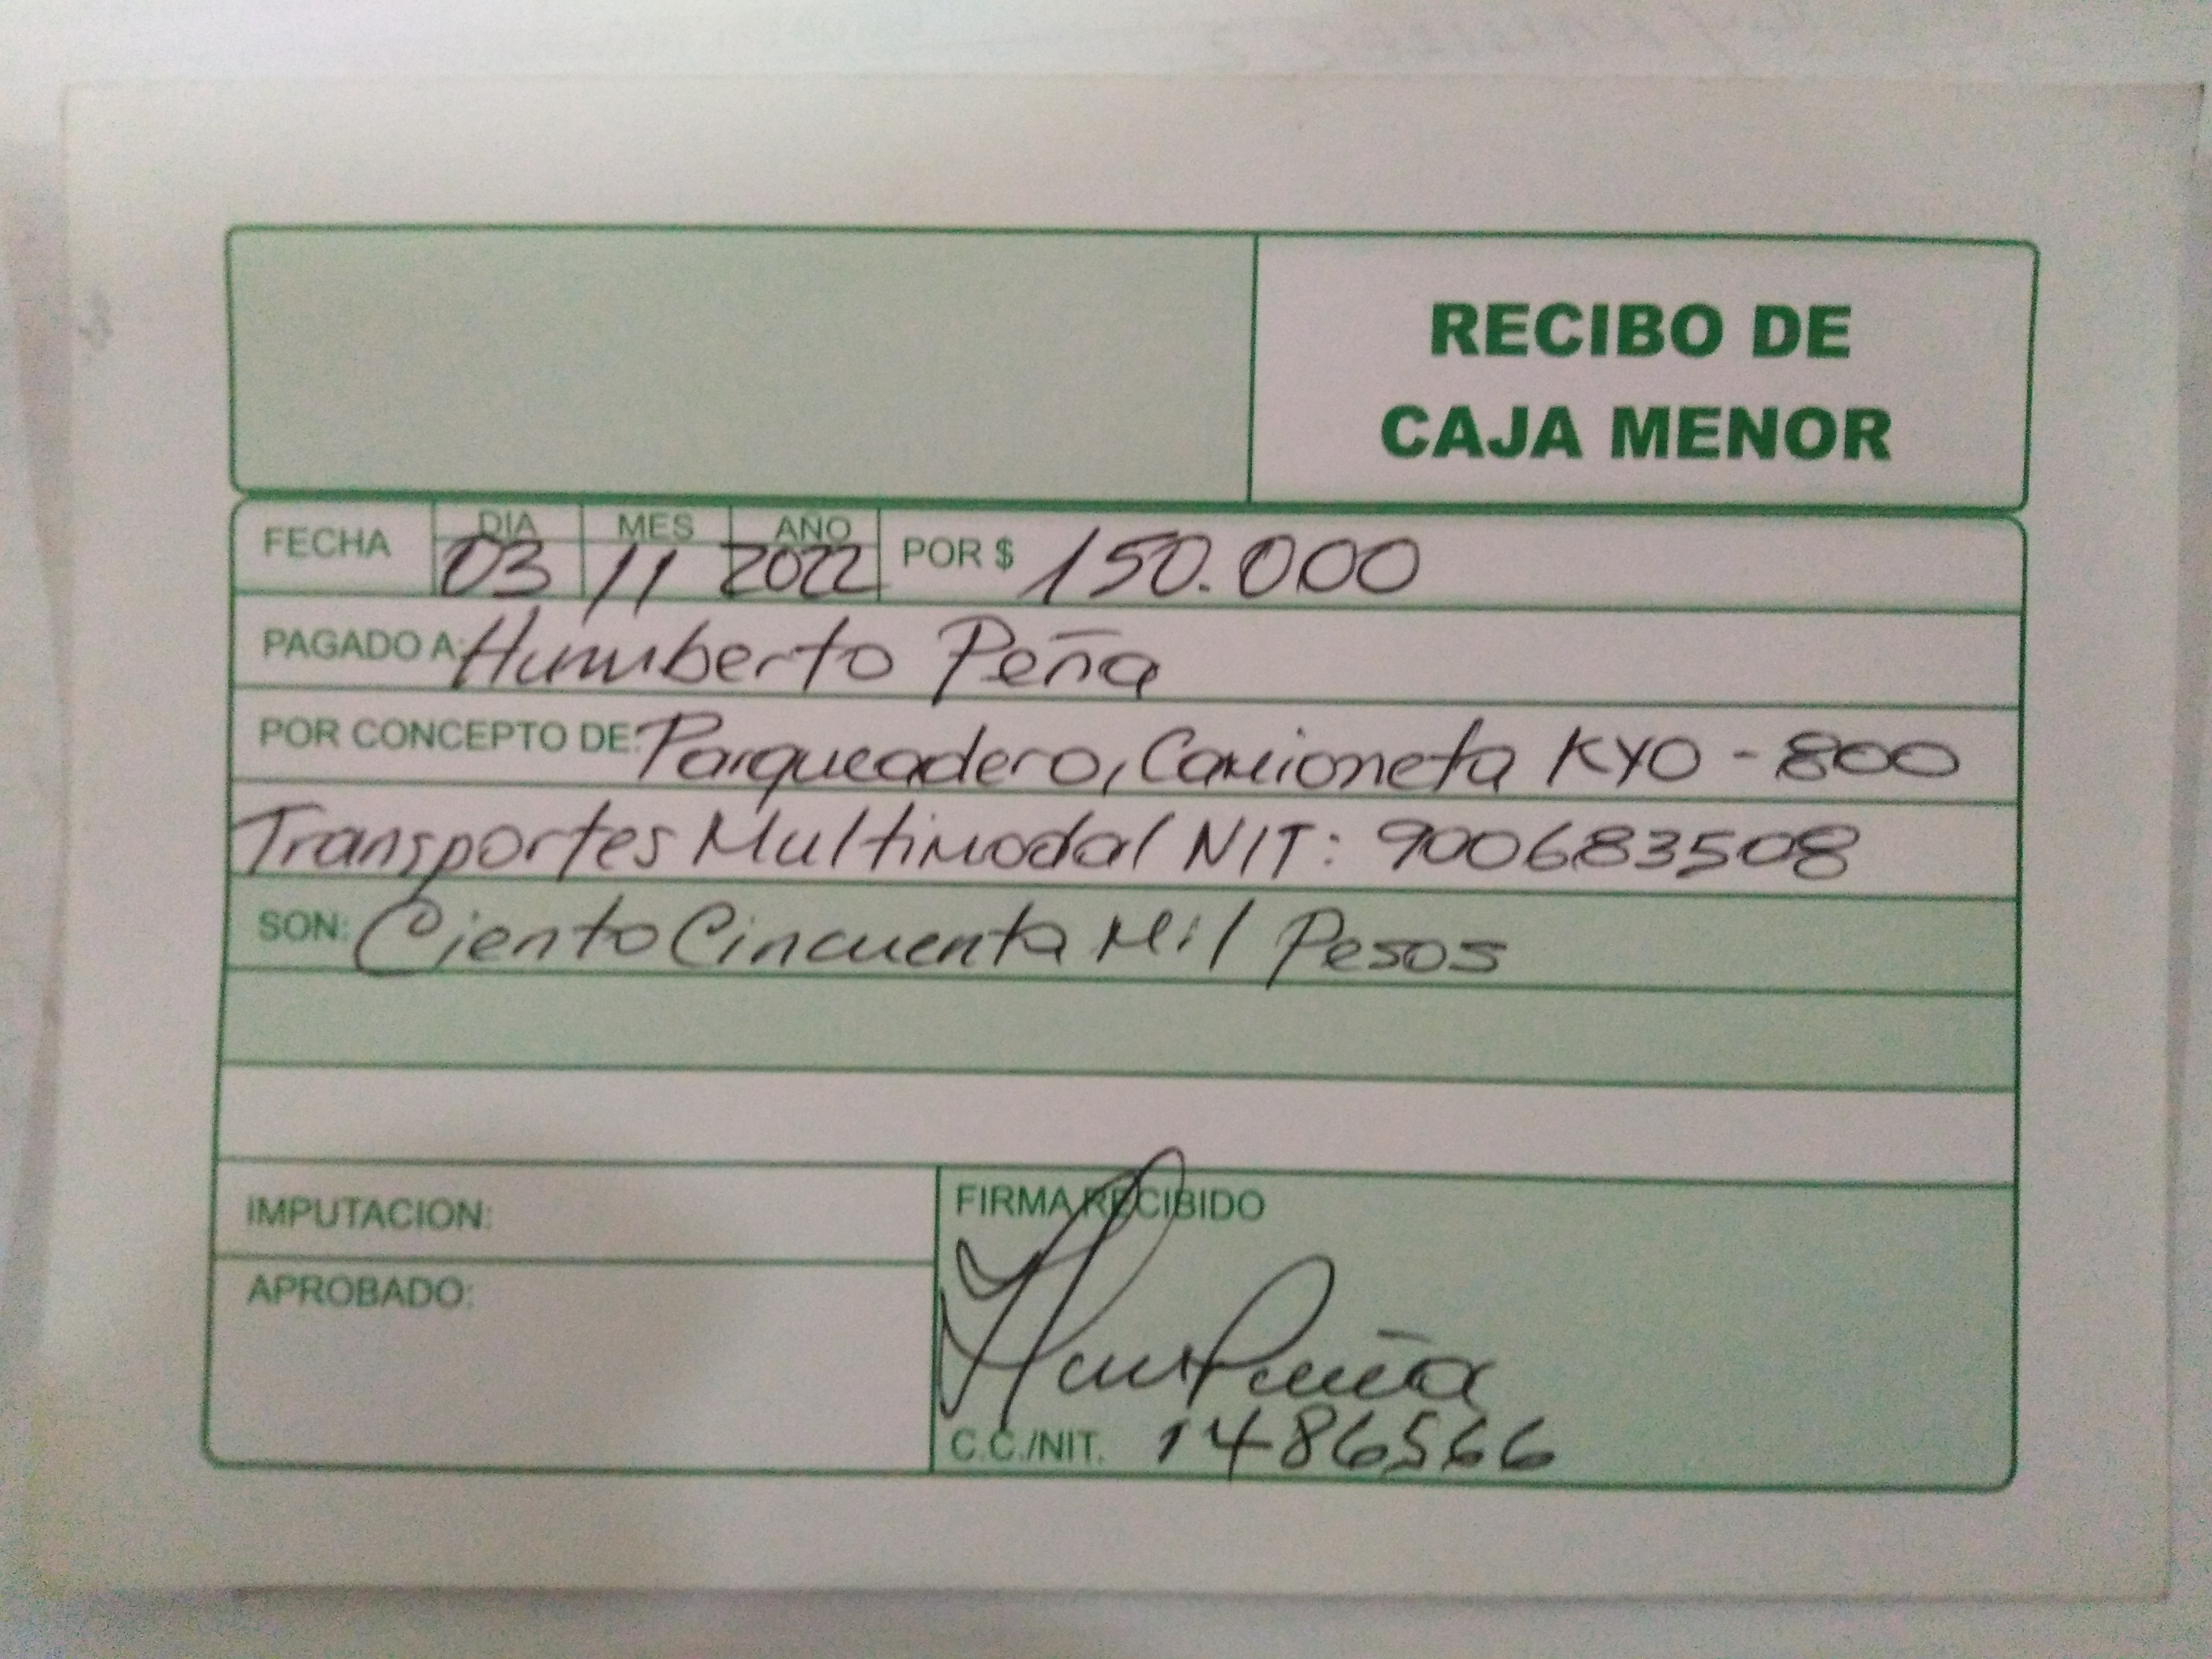 RECIBO DE
CAJA MENOR
FECHA DIA 03 MES 11 AÑO 2022 POR $ 150.000
PAGADO A: Humberto Peña
POR CONCEPTO DE: Parqueadero, Camioneta KYO - 800
Transportes Multimodal NIT: 900683508
SON: Ciento Cincuenta Mil Pesos
IMPUTACION:
APROBADO:
FIRMA RECIBIDO
C.C./NIT. 1486566